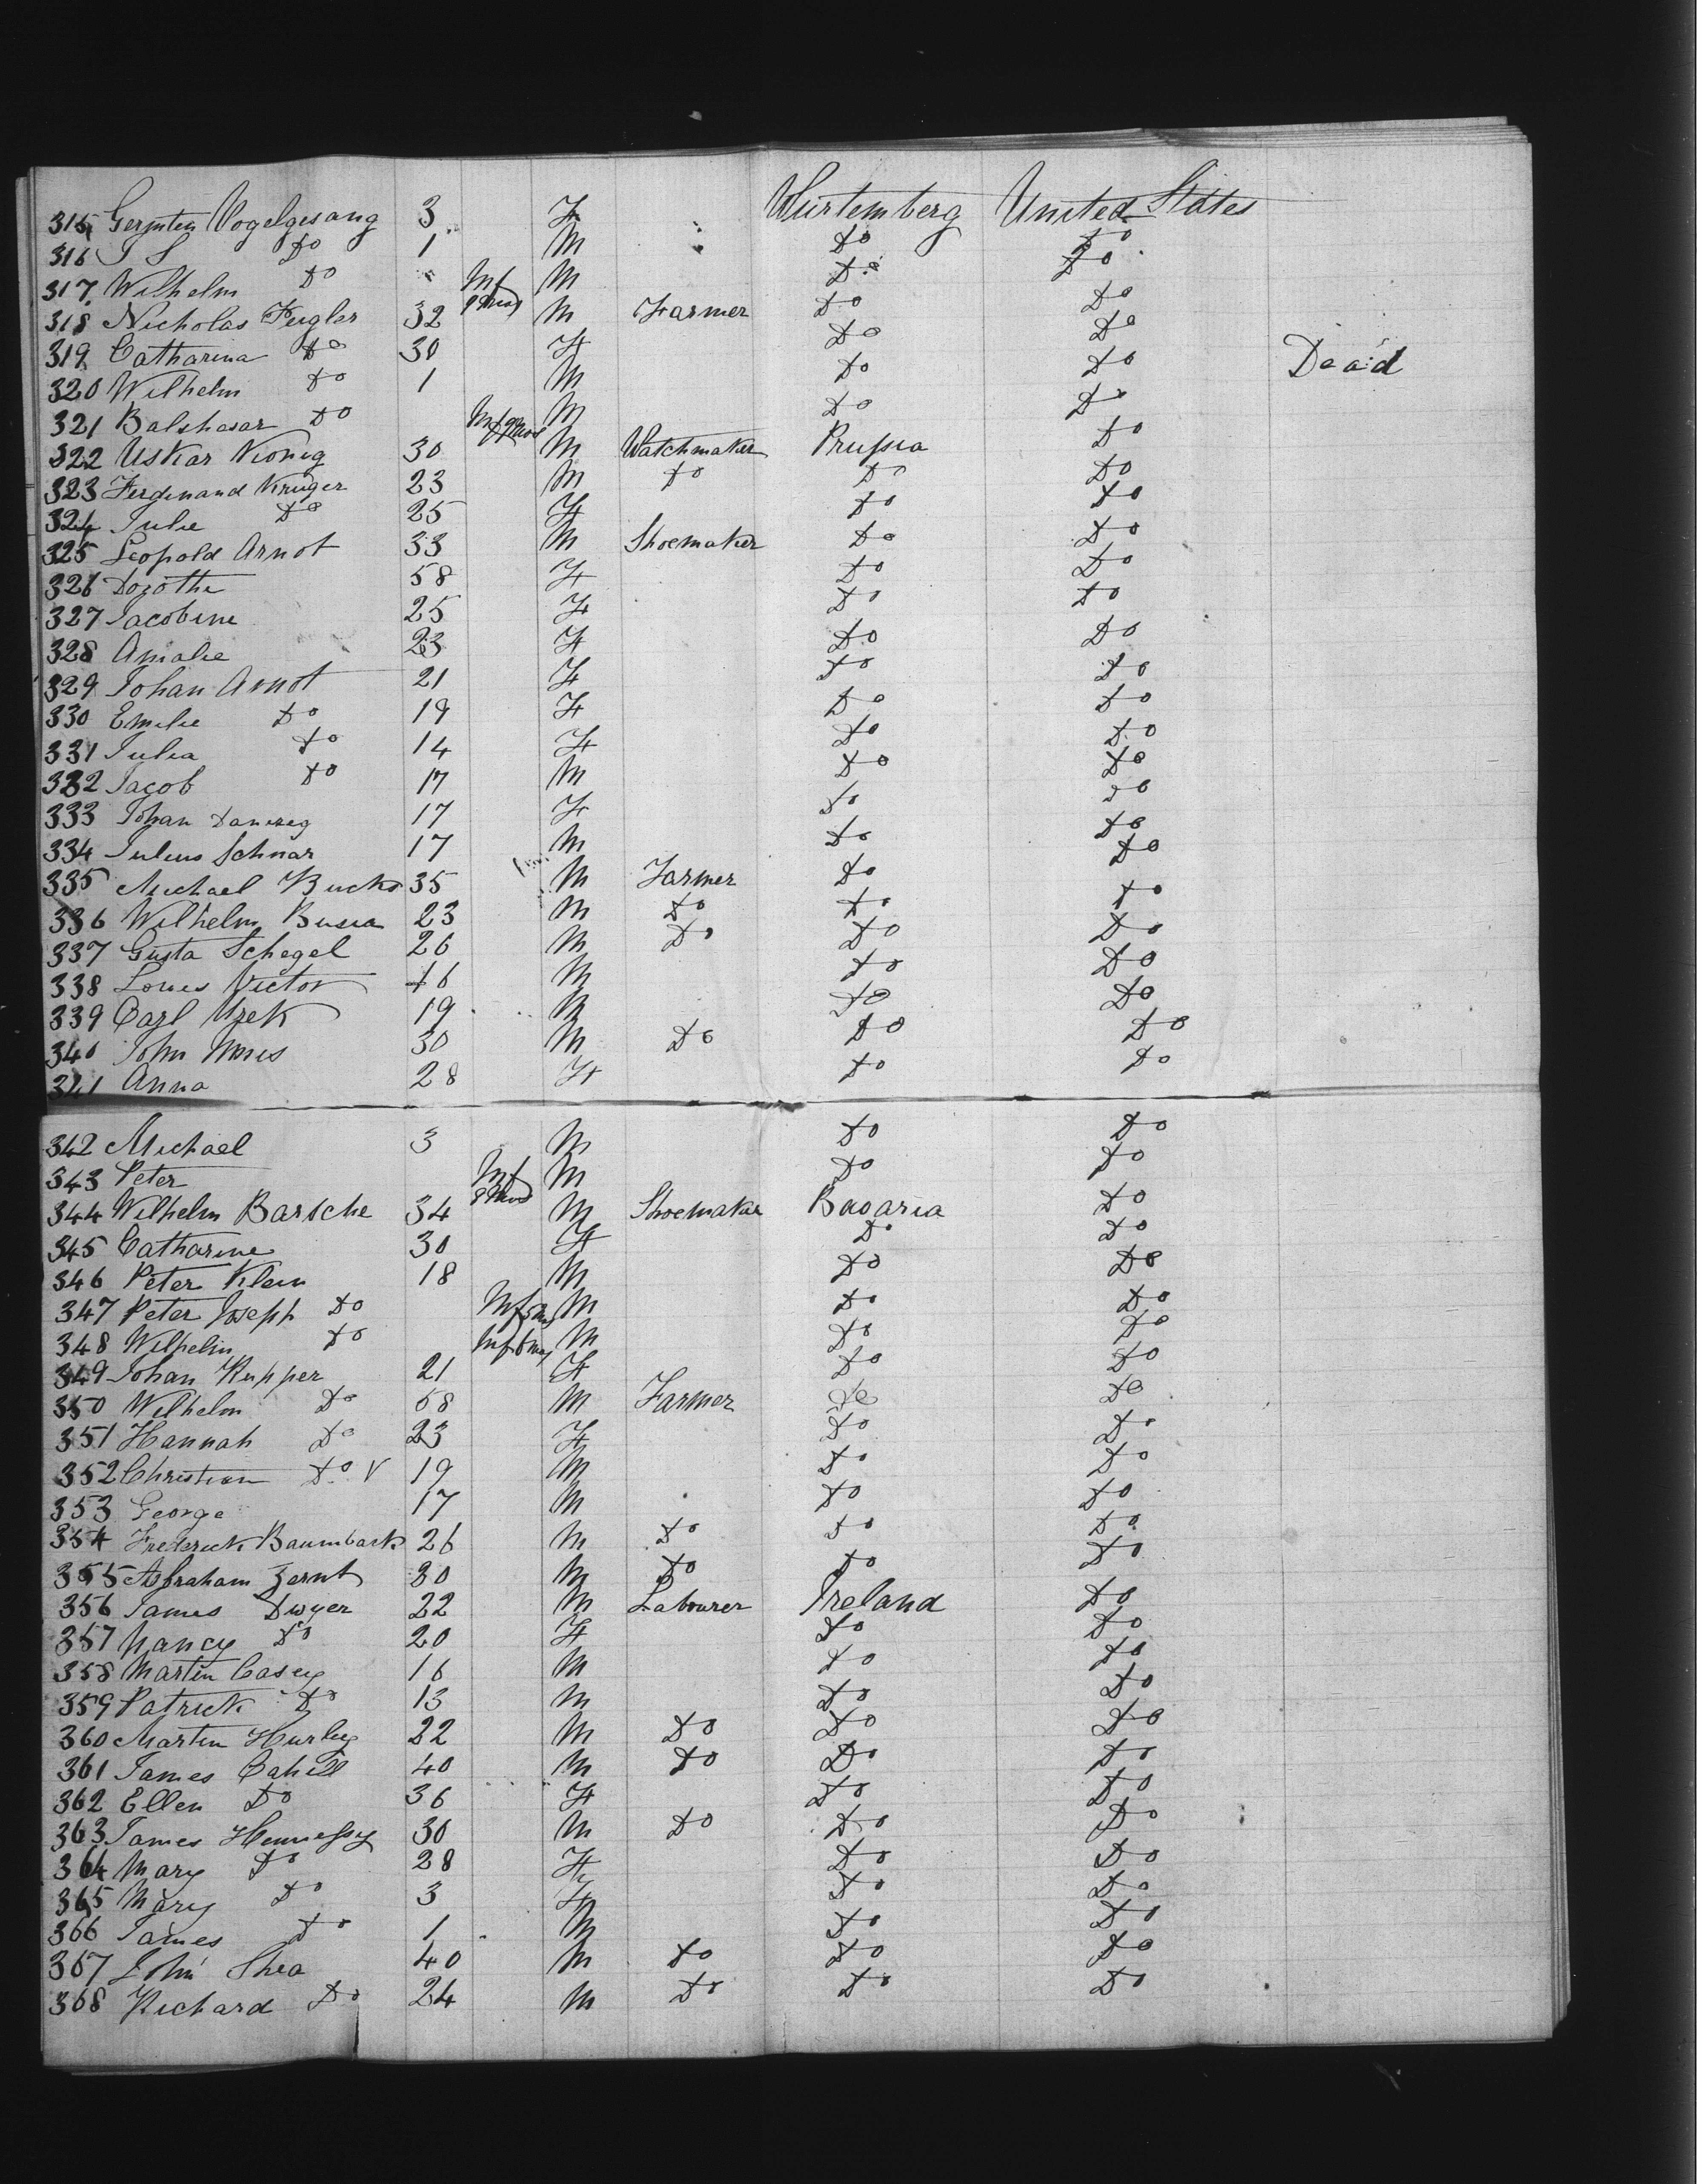 315 Vogelgesang 3 F Wurtemberg United States
316 J S Do 1 M Do Do
317 Wilhelm Do Inf M Do Do
318 Nicholas Feigler 32 M Farmer Do Do
319 Catharina Do 30 F Do Do
320 Wilhelm Do 1 M Do Do Dead
321 Balshasar Do Inf M Do Do
322 Uskar Kionig 30 M Watchmaker Prussia Do
323 Ferdinand Kruger 23 M Do Do Do
324 Julie Do 25 F Do Do
325 Leopold Arnot 33 M Shoemaker Do Do
326 Dorothe 58 F Do Do
327 Jacobine 25 F Do Do
328 Amalie 23 F Do Do
329 Johan Arnot 21 F Do Do
330 Emilie Do 19 F Do Do
331 Julia Do 14 F Do Do
332 Jacob Do 17 M Do Do
333 Johan Danizeg 17 F Do Do
334 Julius Schnar 17 M Do Do
335 Michael Bucks 35 M Farmer Do Do
336 Wilhelm Busia 23 M Do Do Do
337 Gusta Schegel 26 M Do Do Do
338 Louis Victor 46 M Do Do
339 Carl Uzek 19 M Do Do
340 John 30 M Do Do Do
341 Anna 28 F Do Do
342 Michael 3 M Do Do
343 Peter Inf M Do Do
344 Wilhelm Bartche 34 M Shoemaker Bavaria Do
345 Catharine 30 F Do Do
346 Peter Klein 18 M Do Do
347 Peter Joseph Do Inf M Do Do
348 Wilhelm Do Inf M Do Do
349 Johan Kupper 21 F Do Do
350 Wilhelm Do 58 M Farmer Do Do
351 Hannah Do 23 F Do Do
352 Christian Do V 19 M Do Do
353 George 17 M Do Do
354 Frederick Baumbach 26 M Do Do Do
355 Abraham Zernt 30 M Do Do Do
356 James Dwyer 22 M Labourer Ireland Do
357 Nancy Do 20 F Do Do
358 Martin Casey 16 M Do Do
359 Patrick Do 13 M Do Do
360 Martin Hurley 22 M Do Do Do
361 James Cahill 40 M Do Do Do
362 Ellen Do 36 F Do Do
363 James Hennessy 30 M Do Do Do
364 Mary Do 28 F Do Do
365 Mary Do 3 F Do Do
366 James Do 1 M Do Do
367 John Shea 40 M Do Do Do
368 Richard Do 24 M Do Do Do